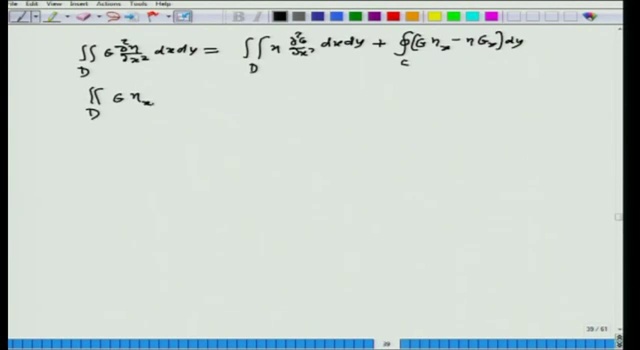 View Insert Actions Tools Help
∬_D G ∂²η/∂x² dxdy = ∬_D η ∂²G/∂x² dxdy + ∮_C (G η_x − η G_x) dy
∬_D G η_x
29 / 61
29